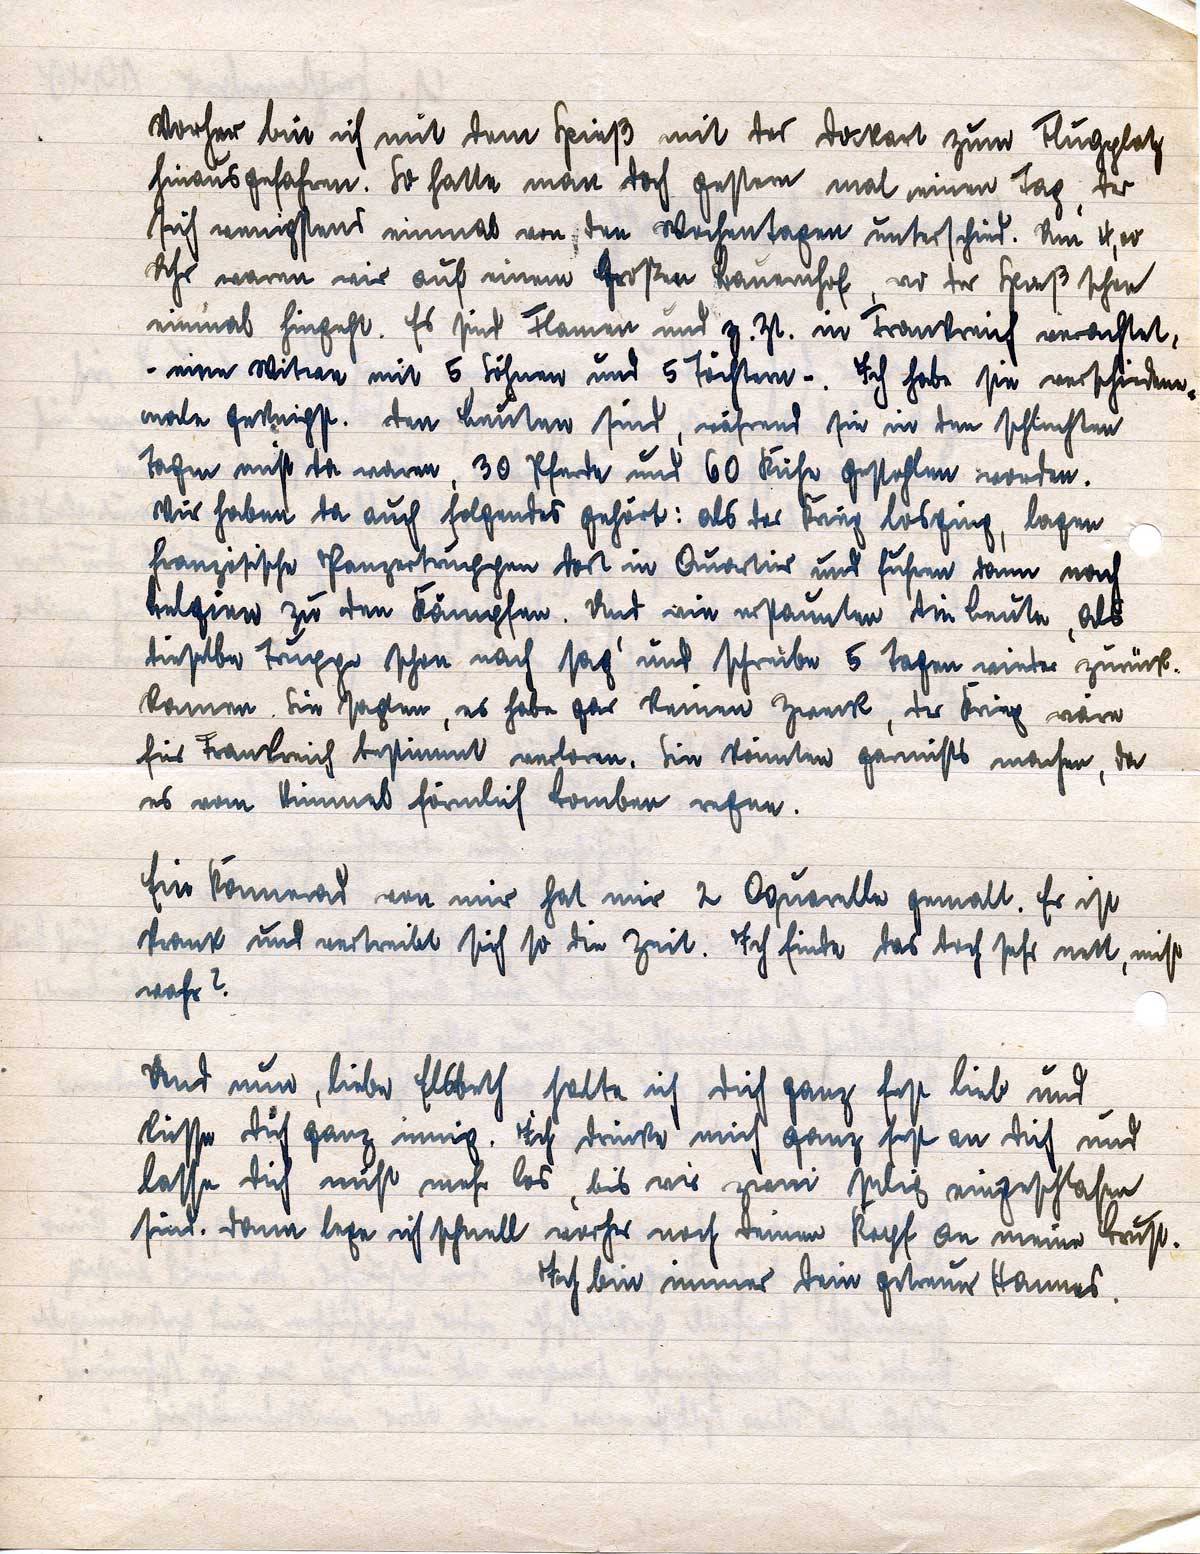 Vorher bin ich mit dem Spieß mit der Dockart zum Flugplatz
hinausgefahren. So hatte man doch gestern mal einen Tag, der
sich wenigstens einmal von den Wochentagen unterschied. Um 4,00
Uhr waren wir auf einem Großen Bauernhof, wo der Spieß schon
einmal hingeht. Es sind Flamen und z. Zt. in Frankreich verachtet,
- eine Witwe mit 5 Söhnen und 5 Töchtern -. Ich habe sie verschiedene-
male geknipst. Den Leuten sind, während sie in den schlechten
Tagen nicht da waren, 30 Pferde und 60 Kühe gestohlen worden.
Wir haben da auch folgendes gehört: als der Krieg losging, lagen
französische Panzertruppen dort in Quartier und fuhren dann nach
Belgien zu den Kämpfen. Und wie erstaunten die Leute, als
dieselbe Truppe schon nach sag' und schreibe 5 Tagen wieder zurück-
kamen. Sie sagten, es habe gar keinen Zweck, der Krieg wäre
für Frankreich bestimmt verloren. Sie könnten garnichts machen, da
es vom Himmel förmlich Bomben regne.
Ein Kamerad von mir hat mir 2 Aquarelle gemalt. Er ist
krank und vertreibt sich so die Zeit. Ich finde das doch sehr nett, nicht
wahr?
Und nun, liebe Elsbeth halte ich Dich ganz fest lieb und
küsse Dich ganz innig. Ich drücke mich ganz fest an Dich und
lasse Dich nicht mehr los, bis wir zwei selig eingeschlafen
sind. Dann lege ich schnell vorher noch Deinen Kopf an meine Brust.
Ich bin immer Dein getreuer Hannes.